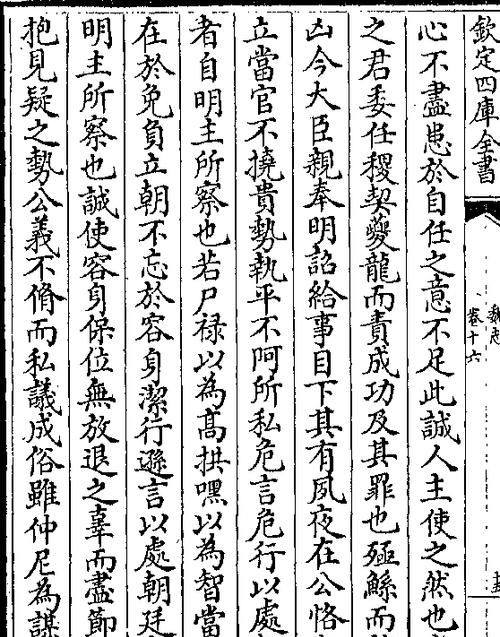 欽定四庫全書
魏志
卷十六
心不盡患於自任之意不足此誠人主使之然也
之君委任稷契夔龍而責成功及其罪也殛鯀而
凶今大臣親奉明詔給事目下其有夙夜在公恪
立當官不撓貴勢執平不阿所私危言危行以處
者自明主所察也若尸禄以為髙拱嘿以為智當
在於免負立朝不忘於容身潔行遜言以處朝廷
明主所察也誠使容身保位無放退之辜而盡節
抱見疑之勢公義不脩而私議成俗雖仲尼為謀